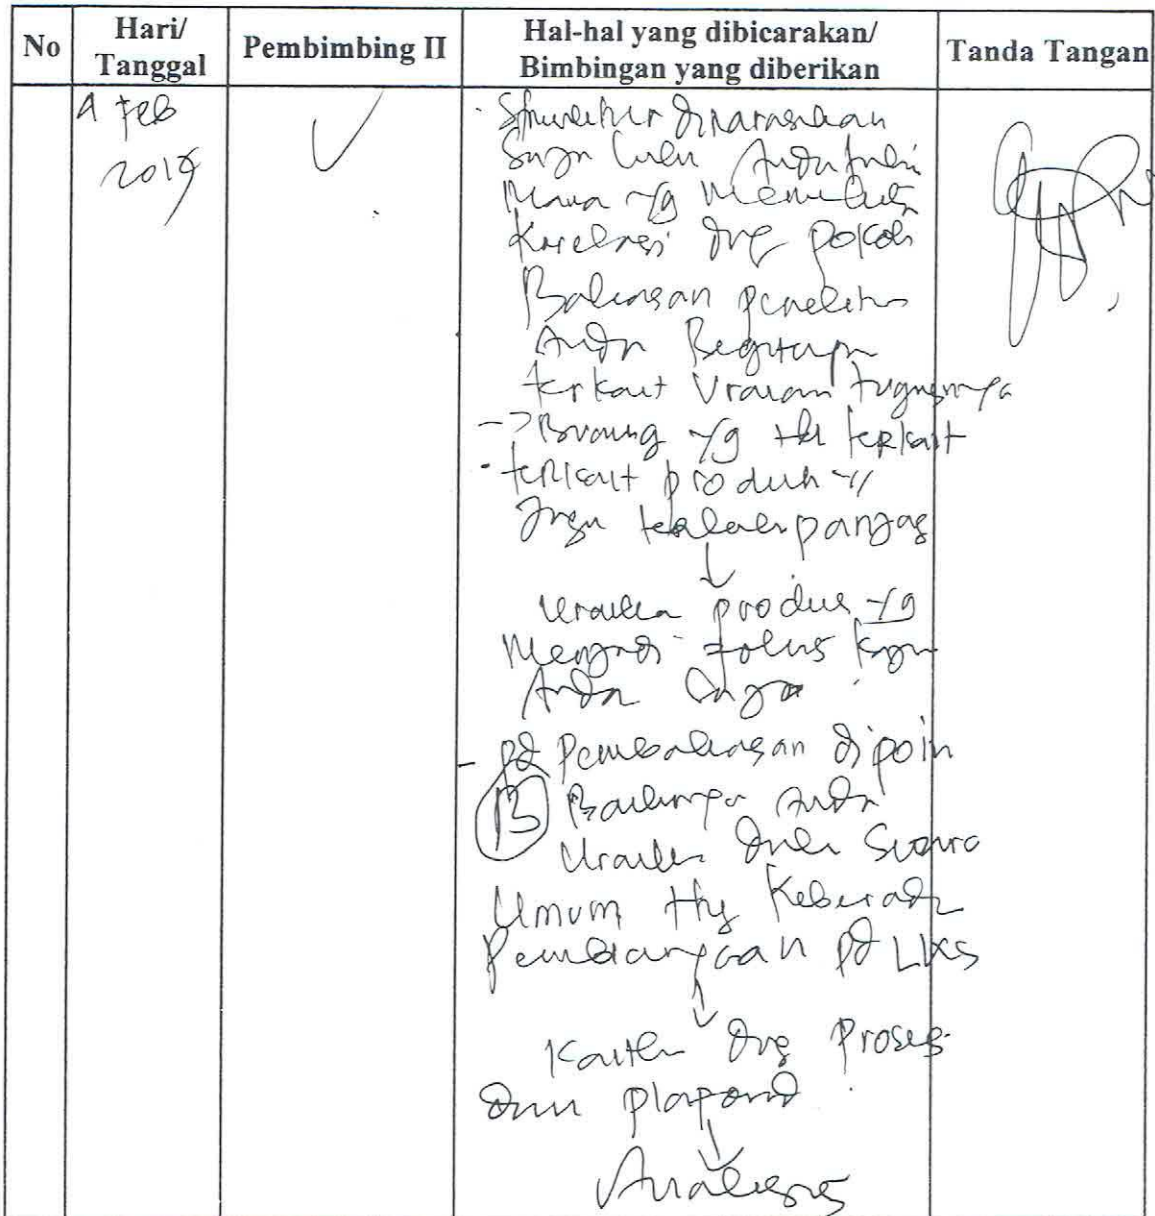 No
Hari/
Tanggal
Pembimbing II
Hal-hal yang dibicarakan/
Bimbingan yang diberikan
Tanda Tangan
4 Feb
2019
- Struktur dinarasikan
saja lalu Anda
Mana yg memiliki
Korelasi dng pokok
Bahasan penelitian
Anda Begitupn
terkait Uraian tugasnya
-> Buang yg tdk terkait
- terkait produk
Jngn terlalu panjang
↓
Uraikan produk yg
Menjadi fokus kajian
Anda saja
- pd Pembahasan dipoin
B Baiknya Anda
Uraikan dulu Secara
Umum ttg Keberadaan
Pembiayaan pd LKS
↓
Kaitkan dng Proses
dan plapond
↓
Analisis